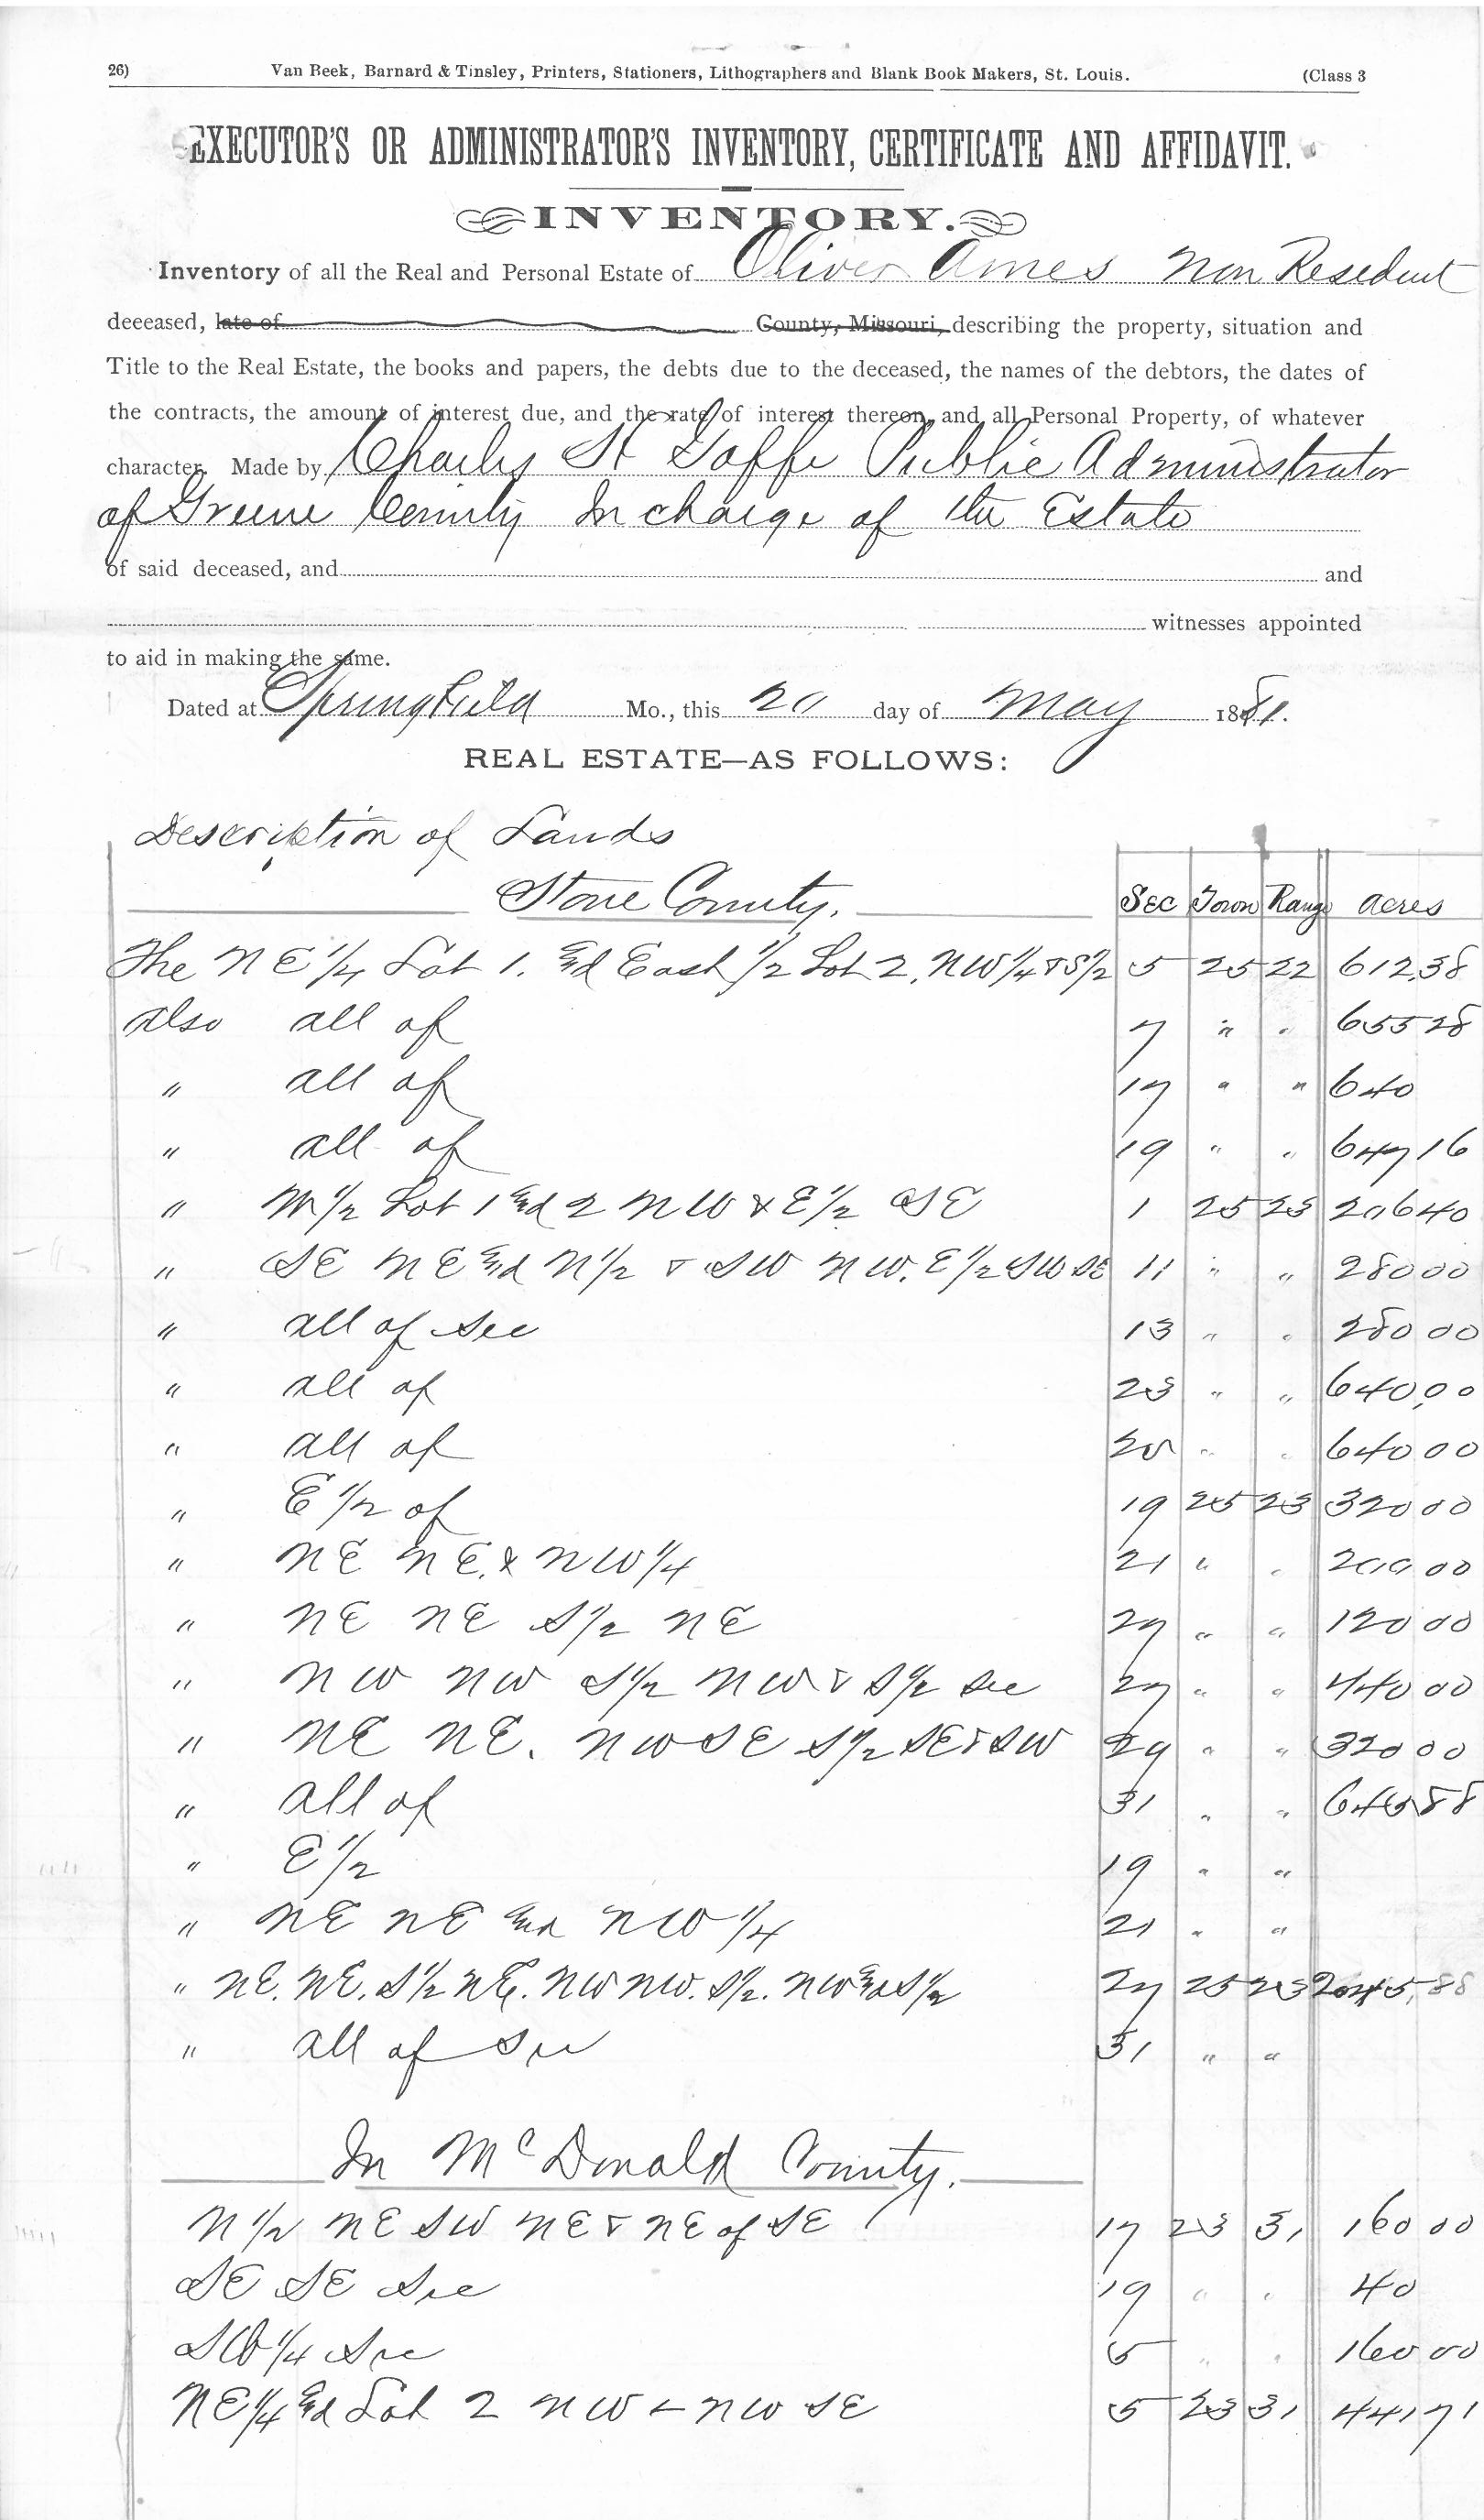 26) Van Beek, Barnard & Tinsley, Printers, Stationers, Lithographers and Blank Book Makers, St. Louis. (Class 3
EXECUTOR'S OR ADMINISTRATOR'S INVENTORY, CERTIFICATE AND AFFIDAVIT.
INVENTORY.
Inventory of all the Real and Personal Estate of Oliver Ames Non Resedent
deceased, late of County, Missouri, describing the property, situation and
Title to the Real Estate, the books and papers, the debts due to the deceased, the names of the debtors, the dates of
the contracts, the amount of interest due, and the rate of interest thereon, and all Personal Property, of whatever
character. Made by Public Administrator
of Greene County In charge of the Estate
of said deceased, and and
witnesses appointed
to aid in making the same.
Dated at Springfield Mo., this 20 day of May 1881.
REAL ESTATE—AS FOLLOWS:
Description of Lands
Stone County. Sec Town Range acres
The NE 1/4 Lot 1. End East 1/2 Lot 2. NW 1/4 & S 1/2 5 25 22 612.38
also all of 7 " " 655 28
" all of 17 " " 640
" all of 19 " " 647 16
" W 1/2 Lot 1 End 2 NW & E 1/2 SE 1 25 23 206 40
" SE NE End N 1/2 & SW NW. E 1/2 SW SE 11 " " 280 00
" all of Sec 13 " " 280 00
" all of 23 " " 640,00
" all of 25 " " 640 00
" E 1/2 of 19 25 23 320 00
" NE NE. & NW 1/4 21 " " 200 00
" NE NE S 1/2 NE 27 " " 120 00
" NW NW S 1/2 NW & S 1/2 Sec 27 " " 440 00
" NE NE. NW SE S 1/2 SE & SW 29 " " 320 00
" All of 31 " " 88
" E 1/2 19 " "
" NE NE End NW 1/4 21 " "
" NE. NE. S 1/2 NE. NW NW. S 1/2. NW End S 1/2 27 25 23
" all of Sec 31 " "
In McDonald County.
N 1/2 NE SW NE & NE of SE 17 23 31 160 00
SE SE Sec 19 " " 40
SW 1/4 Sec 5 " " 160 00
NE 1/4 End Lot 2 NW & NW SE 5 23 31 441 71